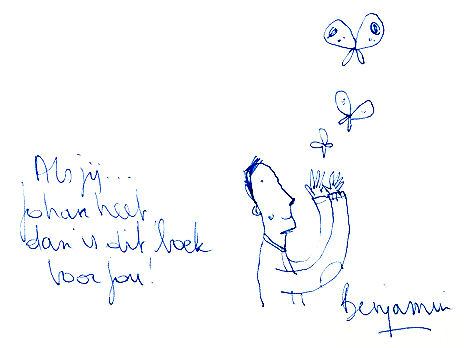 Als jij...
Johan heet
dan is dit boek
voor jou!
Benjamin